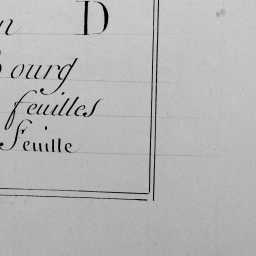 n D
Bourg
feuilles
Feuille